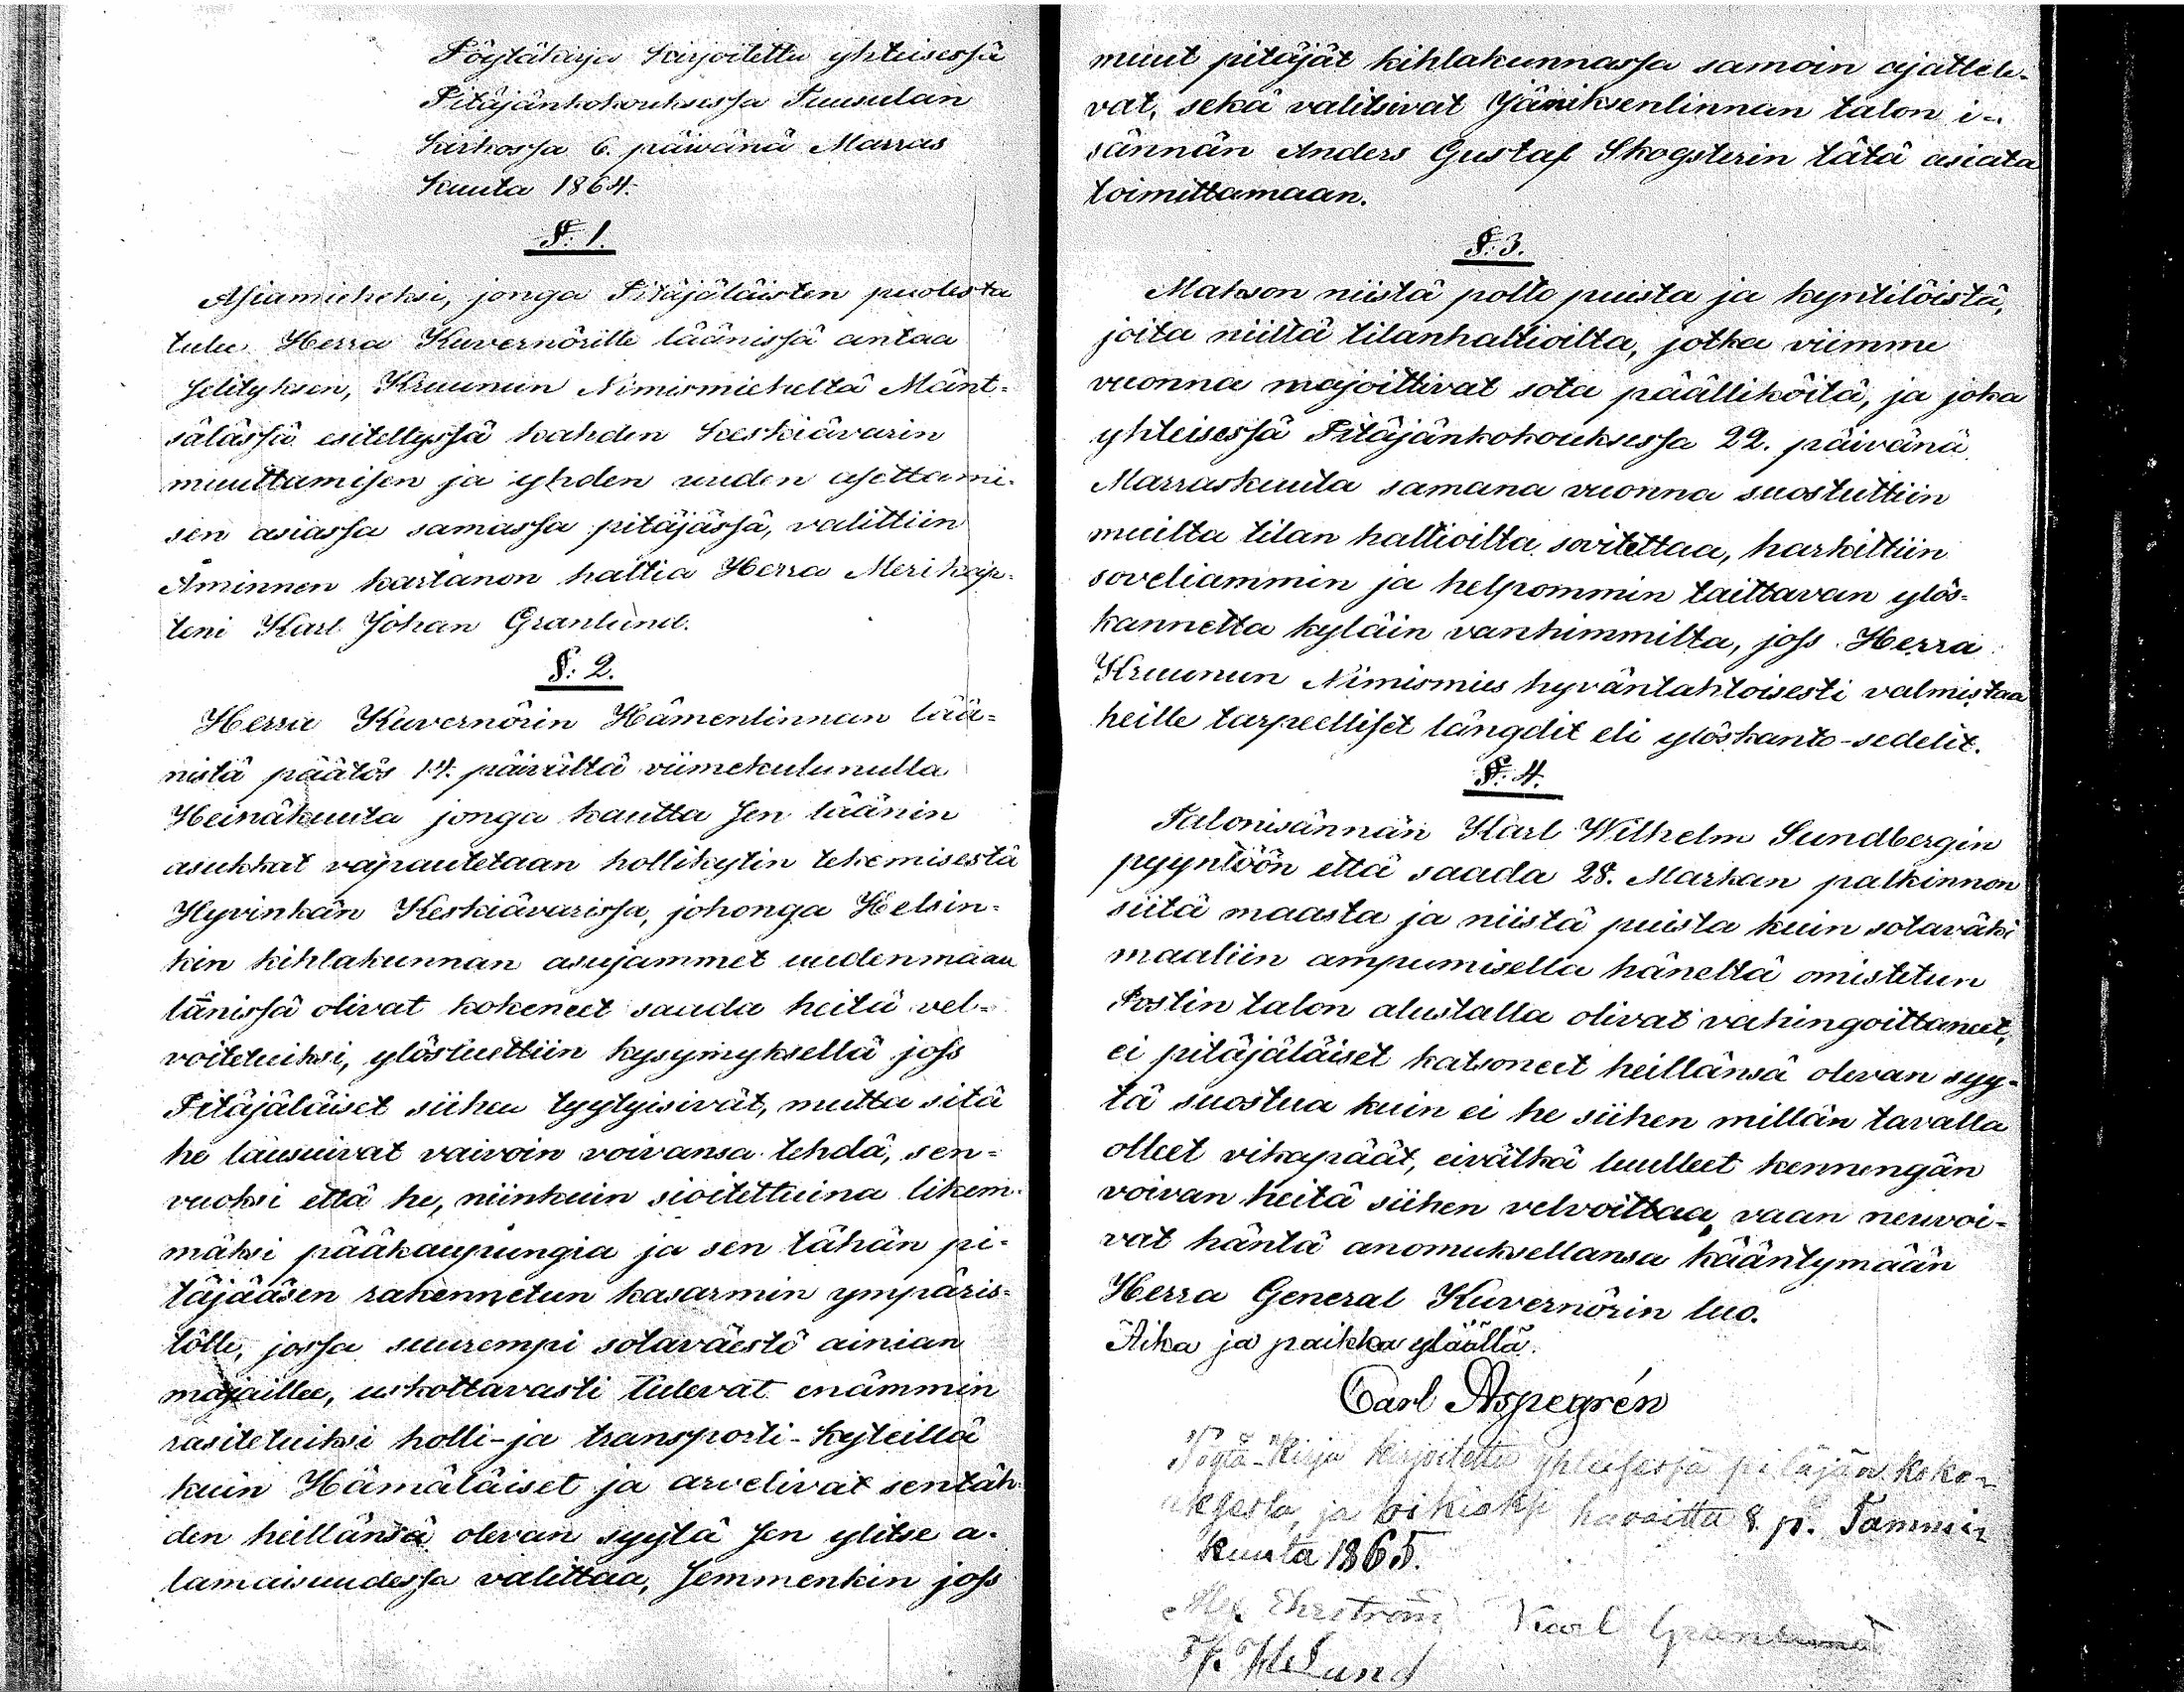 Pöytäkirja kirjoitettu yhteisessä
Pitäjänkokouksessa Tuusulan
kirkossa 6. päivänä Marras
kuuta 1864.
§. 1.
Asiamieheksi, jonga Pitäjäläisten puolesta
tulee Herra Kuvernörille läänissä antaa
selityksen, Kruunun Nimismieheltä Mänt-
sälässä esitellyssä kahden keskiävarin
muuttamisen ja yhden uuden asettami-
sen asiassa samassa pitäjässä, valittiin
Åminnen kartanon haltia Herra Merikap-
teni Karl Johan Granlund.
§. 2.
Herra Kuvernörin Hämenlinnan lää-
nistä päätös 14. päivältä viimekulunulla
Heinäkuuta jonga kautta sen läänin
asukkat vapautetaan hollikytin tekemisestä
Hyvinkän Keskiävarissa, johonga Helsin-
kin kihlakunnan asujammet uudenmaan
länissä olivat kokeneet saada heitä vel-
voiteteiksi, ylösluettiin kysymyksellä joss
Pitäjäläiset siihen tyytyisivät, mutta sitä
he lausuivat vaivoin voivansa tehdä, sen-
vuoksi että he, niinkuin sioitettuina likem-
mäksi pääkaupungia ja sen tähän pi-
täjääsen rakennetun kasarmin ympäris-
tölle, jossa suurempi sotaväestö ainian
majaillee, uskottavasti tulevat enämmin
rasitetuiksi holli- ja transporti-kyteillä
kuin Hämäläiset ja arvelivat sentäh-
den heillänsä olevan syytä sen ylitse a-
lamaisuudessa valittaa, semmenkin joss
muut pitäjät kihlakunnassa samoin ajatteli-
vat, sekä valitsivat Jäniksenlinnan talon i-
sännän Anders Gustaf Skogsterin tätä asiata
toimittamaan.
§. 3.
Makson niistä polto puista ja kyntilöistä,
joita niiltä tilanhaltioilta, jotka viimme
vuonna majoittivat sota päälliköitä, ja joka
yhteisessä Pitäjänkokouksessa 22. päivänä
Marraskuuta samana vuonna suostuttiin
muilta tilan haltioilta sovitettaa, harkittiin
soveliammin ja helpommin taittavan ylös-
kannetta kyläin vanhimmilta, joss Herra
Kruunun Nimismies hyväntahtoisesti valmistaa
heille tarpeelliset längdit eli ylöskanto-sedelit.
§. 4.
Talonisännän Karl Wilhelm Sundbergin
pyyntöön että saada 28. Markan palkinnon
siitä maasta ja niistä puista kuin sotaväki
maaliin ampumisella häneltä omistetun
Postin talon alustalla olivat vahingoittaneet,
ei pitäjäläiset katsoneet heillänsä olevan syy-
tä suostua kuin ei he siihen millän tavalla
olleet vikapäät, eivätkä luulleet kennengän
voivan heitä siihen velvoittaa, vaan neuvoi-
vat häntä anomuksellansa kääntymään
Herra General Kuvernörin luo.
Aika ja paikka ylöällä.
Carl Aspegrén
Pöytä-Kirja kirjoitettu yhteisessä pitäjän koko-
uksesta, ja oikiaksi havaittu 8 p. Tammi
kuuta 1865.
Alex Ehrström Karl Granlund
Helund